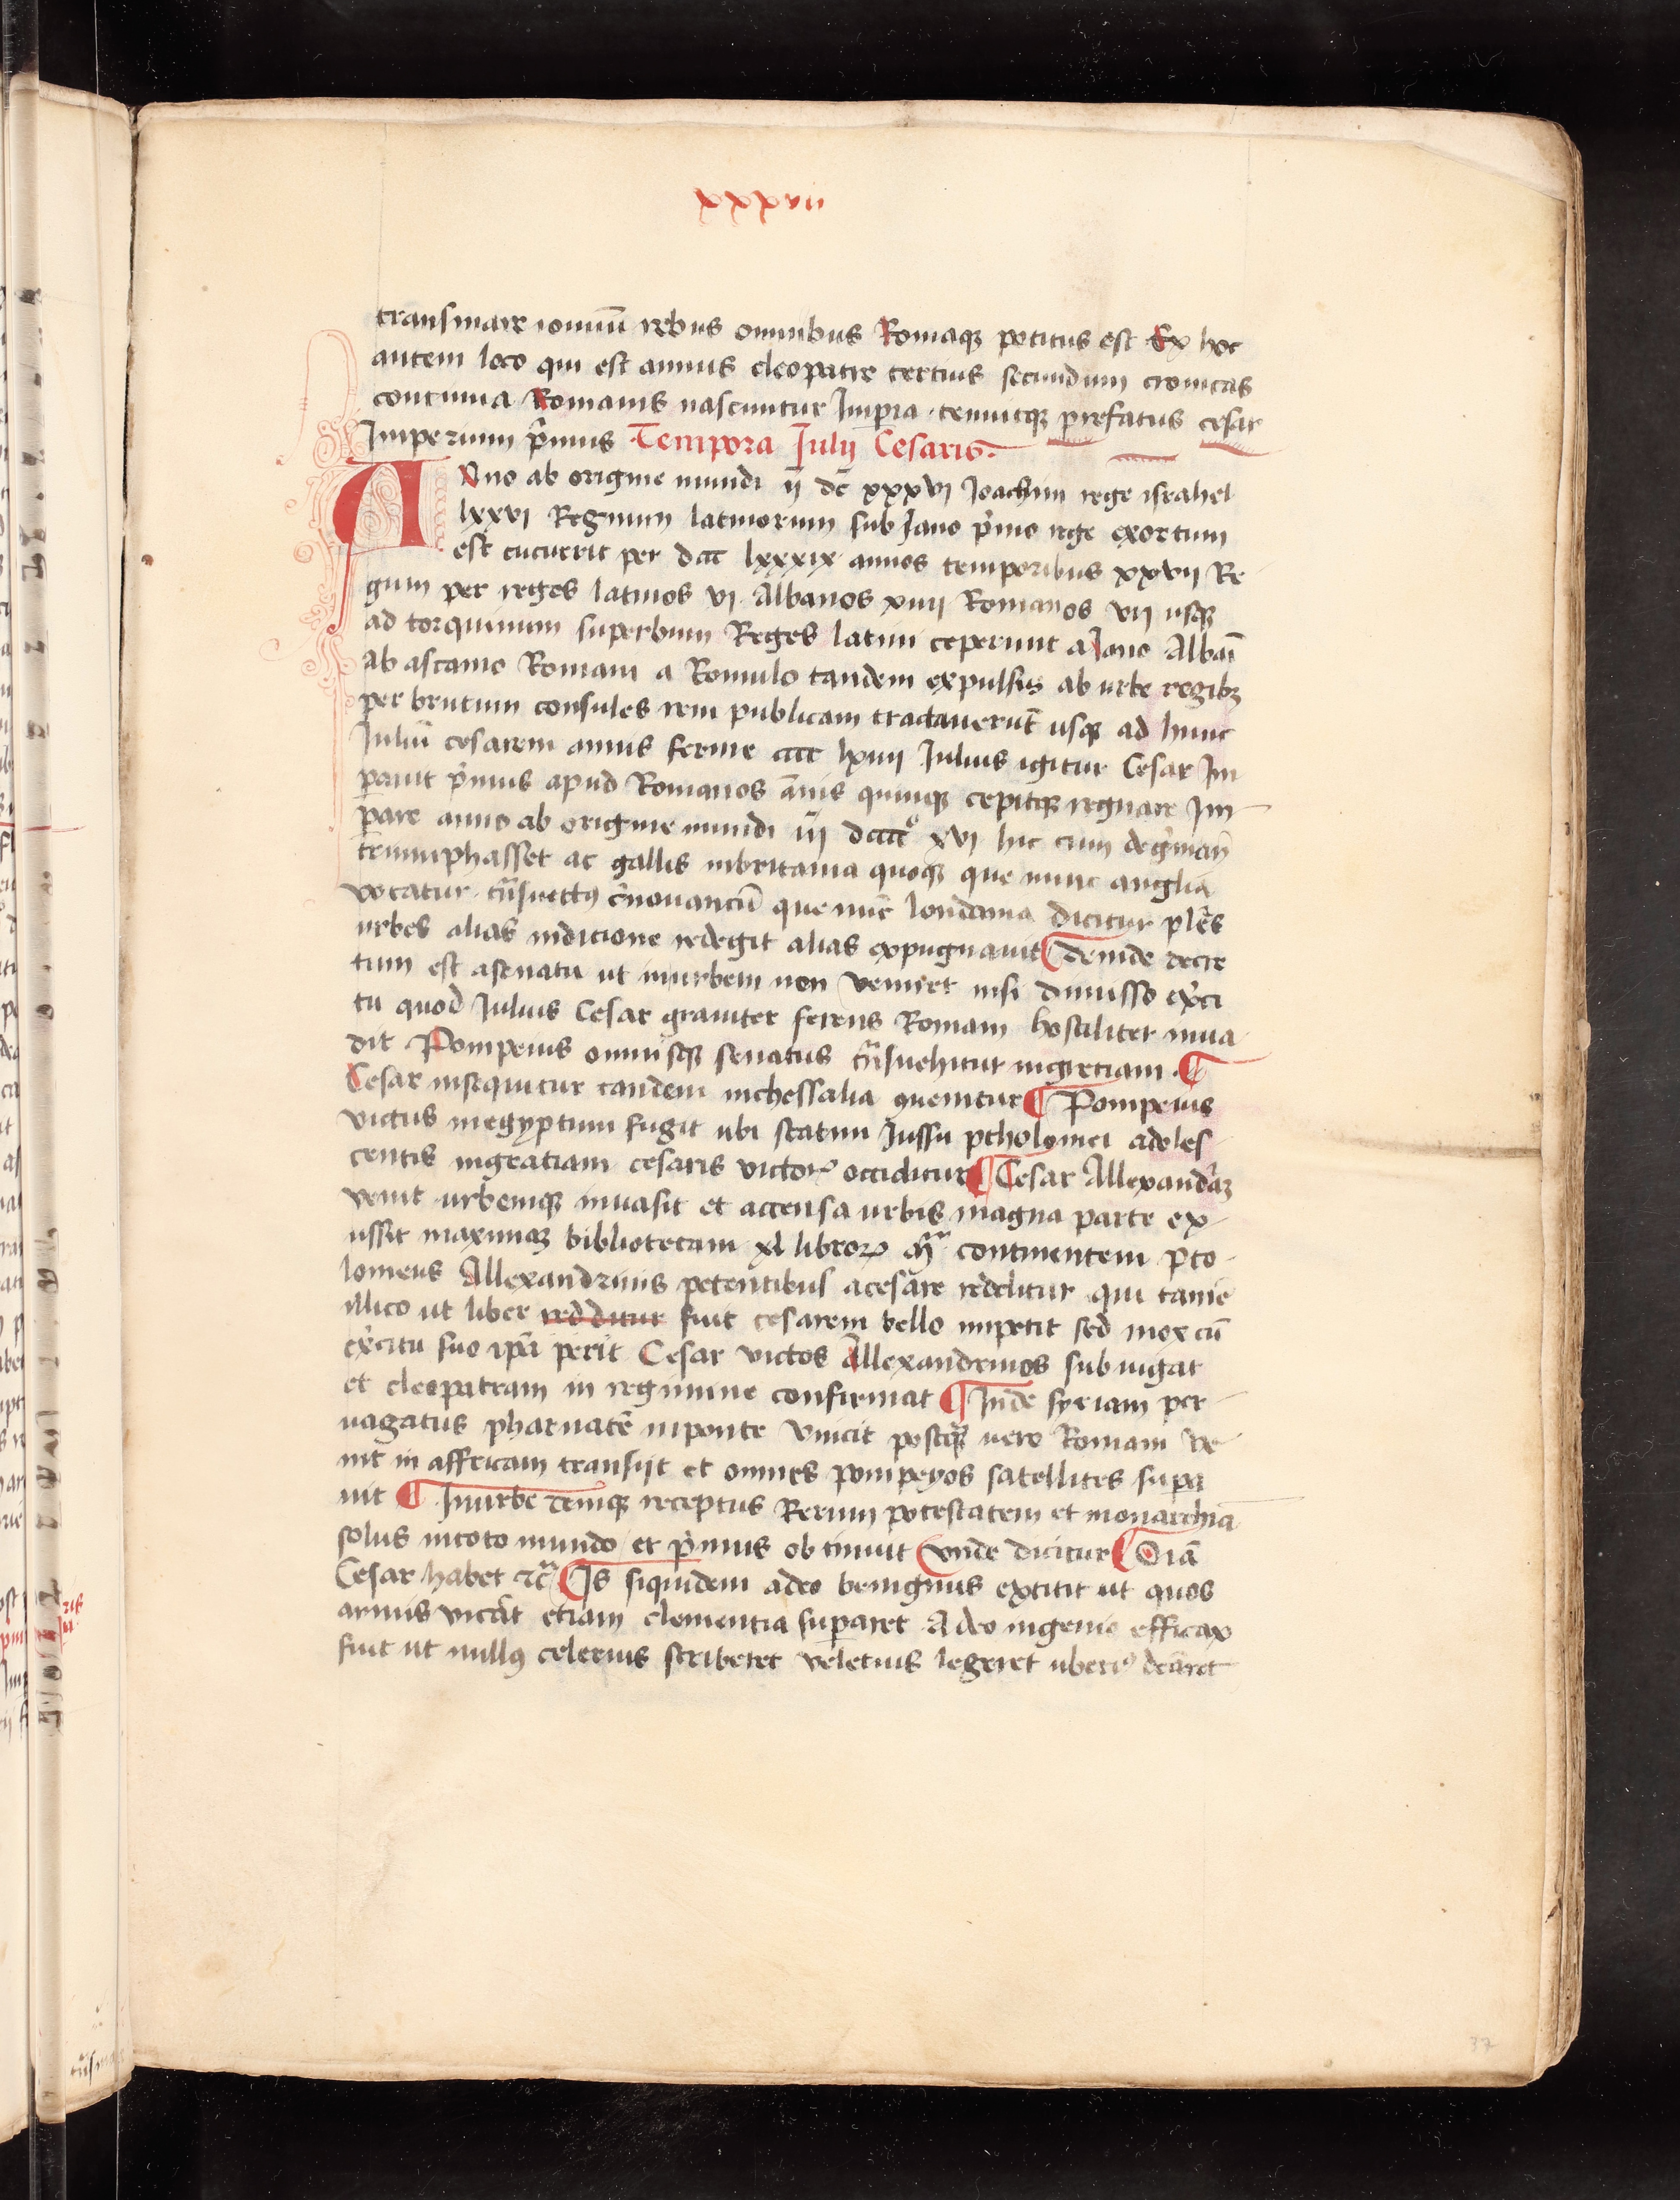 xxxvii
transmare ioniuū rebus omnibus Romaqꝫ petitus est Ex hoc
autem loco qui est annus cleopatre tertius secundum cronicas
continua Romanis nascuntur Imꝑia tenuitqꝫ prefatus cesar
Imperium pͥmus Tempora Iulij Cesaris.
ANno ab origine mundi ij̄ dc̄ xxxvi Joachim rege israhel
lxxvi Regnum latinorum sub Jano pͥmo rege exortum
est cucurrit per dccc lxxxix annos temporibus xxvii Re
gum per reges latinos vi Albanos xiiii Romanos vii usqꝫ
ad torquinum superbum Reges latini ceperunt a Jano Albāi
Ab ascanio Romani a Romulo tandem expulsis ab urbe regibꝫ
per brutum consules rem publicam tractauerūt usqꝫ ad hunc
Juliū cesarem annis ferme cccc lxiiii Julius igitur Cesar Im
ꝑauit pͥmus apud Romanos ānis quinqꝫ cepitqꝫ regnare Im
ꝑare anno ab origine mundi iij̄ dcccc° xvi hic cum degͤrmanij
triumphasset ac gallis inbritania quoqꝫ que nunc anglia
vocatur tͣnsuectꝰ tͥnouanciū que nūc londonia dicitur plͬes
urbes alias indicione redegit alias expugnauit ¶ deinde decre
tum est asenatu ut inurbem non veniret nisi dimisso exͬci
tu quod Julius Cesar grauiter ferens Romam hostiliter inua
dit Pompeius omnisqꝫ senatus tͣnsuehitur ingretiam ¶
Cesar insequitur tandem inthessalia ꝯuenitur ¶ Pompeius
victus inegyptum fugit ubi statim Jussu ptholomei adoles
centis ingratiam cesaris victorꝭ occiditur ¶ Cesar Allexandͥaꝫ
venit urbemqꝫ inuasit et accensa urbis magna parte ex
ussit maximaqꝫ bibliotecam xl libroꝝ mͣ continentem pto
lomeus Allexandrinis petentibus acesare redditur qui tamē
illico ut liber redditur fuit cesarem bello impetit sed mox cū
exͬcitu suo ipā perit Cesar victos Allexandrinos subiugat
et cleopatram in regimine confirmat ¶ Inde syriam per
uagatus pharnatē inponte vincit postqͣꝫ uero Romam ve
nit in affricam transijt et omnes pompeyos satellites suꝑa
uit ¶ Inurbe demqꝫ receptus Rerum potestatem et monarchiā
solus intoto mundo et pͥmus obtinuit Vnde dicitur ¶ Oīa
Cesar habet ⁊cͣ ¶ Is siquidem adeo benignus extitit ut quos
armis vicͬat etiam clementia suꝑaret Adeo ingenio efficax
fuit ut nullꝰ celerius scriberet veletius legeret uberiꝰ dcāret
37